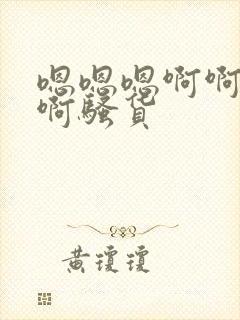 嗯嗯嗯啊啊
啊骚货
黄琼琼